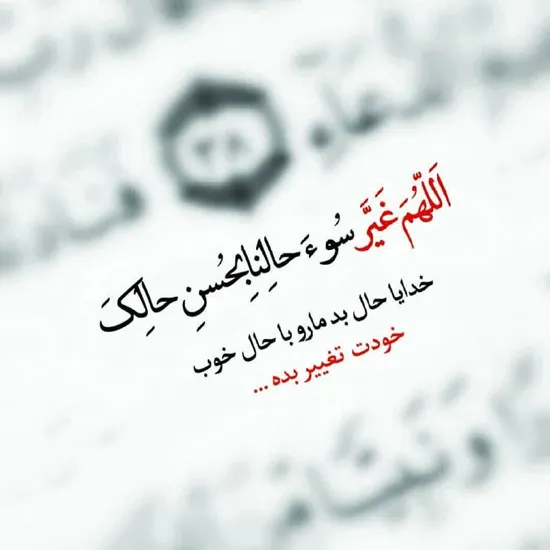 الدعاء
۳۸
اَللّهُمَ غَيَّر سُوءَ حالِنِا بِحُسنِ حالِکَ
خدایا حال بد مارو با حال خوب
خودت تغییر بده ...